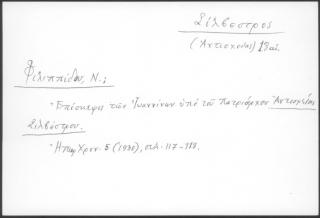 Σίλβεστρος
(Αντιοχείας) 18 αι.
Φιλιππίδου, Ν.:
Επίσκεψις των Ιωαννίνων υπό του Πατριάρχου Αντιοχείας
Σιλβέστρου.
Ηπειρ Χρον. 5 (1930), σελ. 117-118.